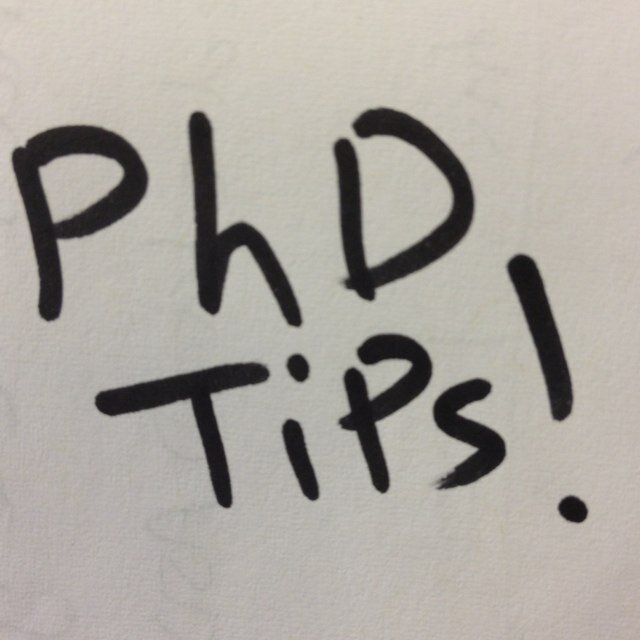 PhD
TiPs!